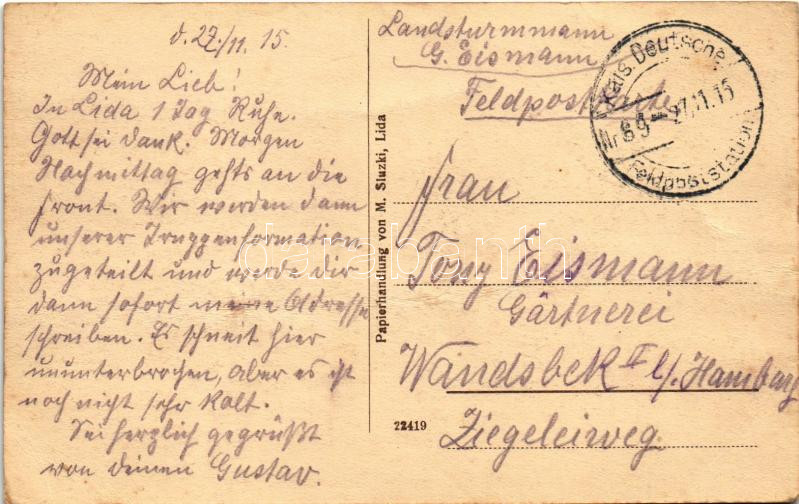 d. 27./11. 15.
Mein Lieb!
In Lida 1 Tag Ruhe.
Gott sei Dank. Morgen
Nachmittag gehts an die
Front. Wir werden dann
unserer Truppenformation
zugeteilt und werde dir
dann sofort meine Adresse
schreiben. Es schneit hier
ununterbrochen, aber es ist
noch nicht sehr kalt.
Sei herzlich gegrüßt
von deinen Gustav.
Papierhandlung von M. Sluzki, Lida
22419
Landsturmmann
G. Eismann
Feldpostkarte
Kais. Deutsche
Nr 89 27.11.15
Feldpoststation
Frau
Tony Eismann
Gärtnerei
Wandsbek II b/. Hamburg
Ziegeleiweg
darabanth